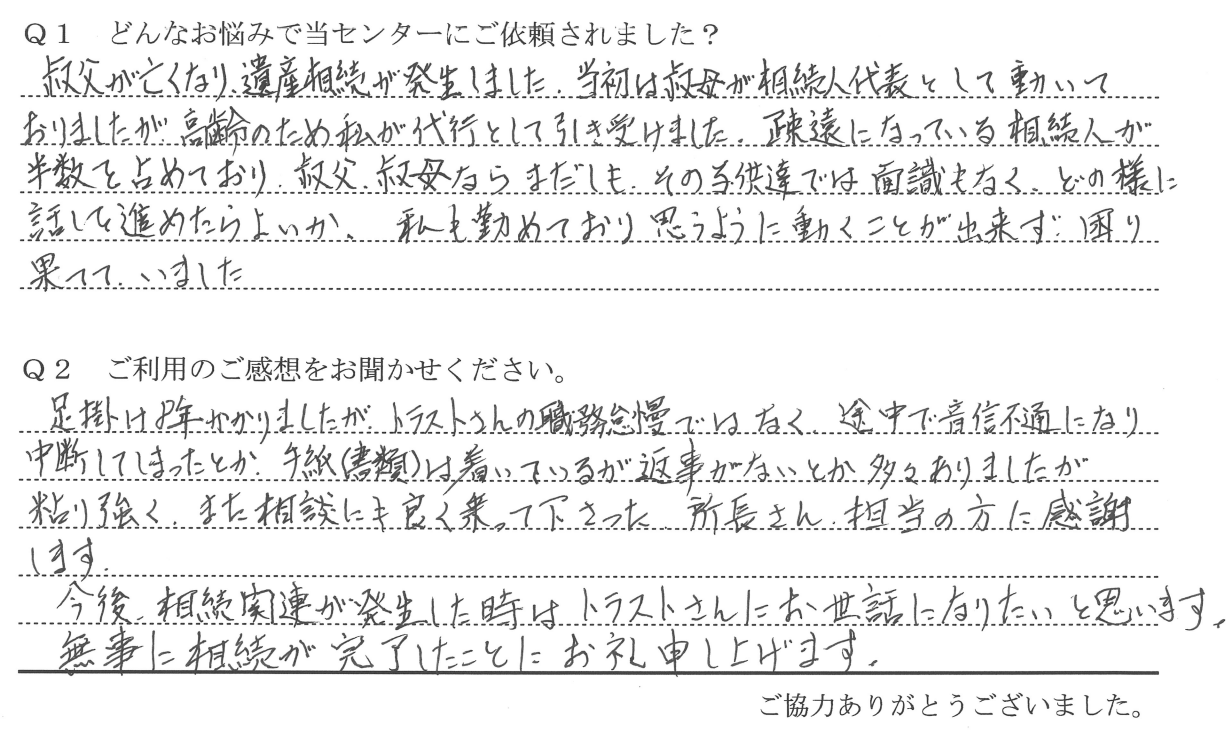 Q1 どんなお悩みで当センターにご依頼されました?
叔父が亡くなり、遺産相続が発生しました。当初は叔母が相続人代表として動いて
おりましたが、高齢のため私が代行として引き受けました。疎遠になっている相続人が
半数を占めており、叔父、叔母ならまだしも、その子供達では面識もなく、どの様に
話しを進めたらよいか、私も勤めており思うように動くことが出来ず、困り
果てて、いました
Q2 ご利用のご感想をお聞かせください。
足掛け2年かかりましたが、トラストさんの職務怠慢ではなく、途中で音信不通になり
中断してしまったとか、手紙(書類)は着いているが返事がないとか多々ありましたが
粘り強く、また相談にも良く乗って下さった、所長さん、担当の方に感謝
します。
今後、相続関連が発生した時はトラストさんにお世話になりたいと思います。
無事に相続が完了したことにお礼申し上げます。
ご協力ありがとうございました。